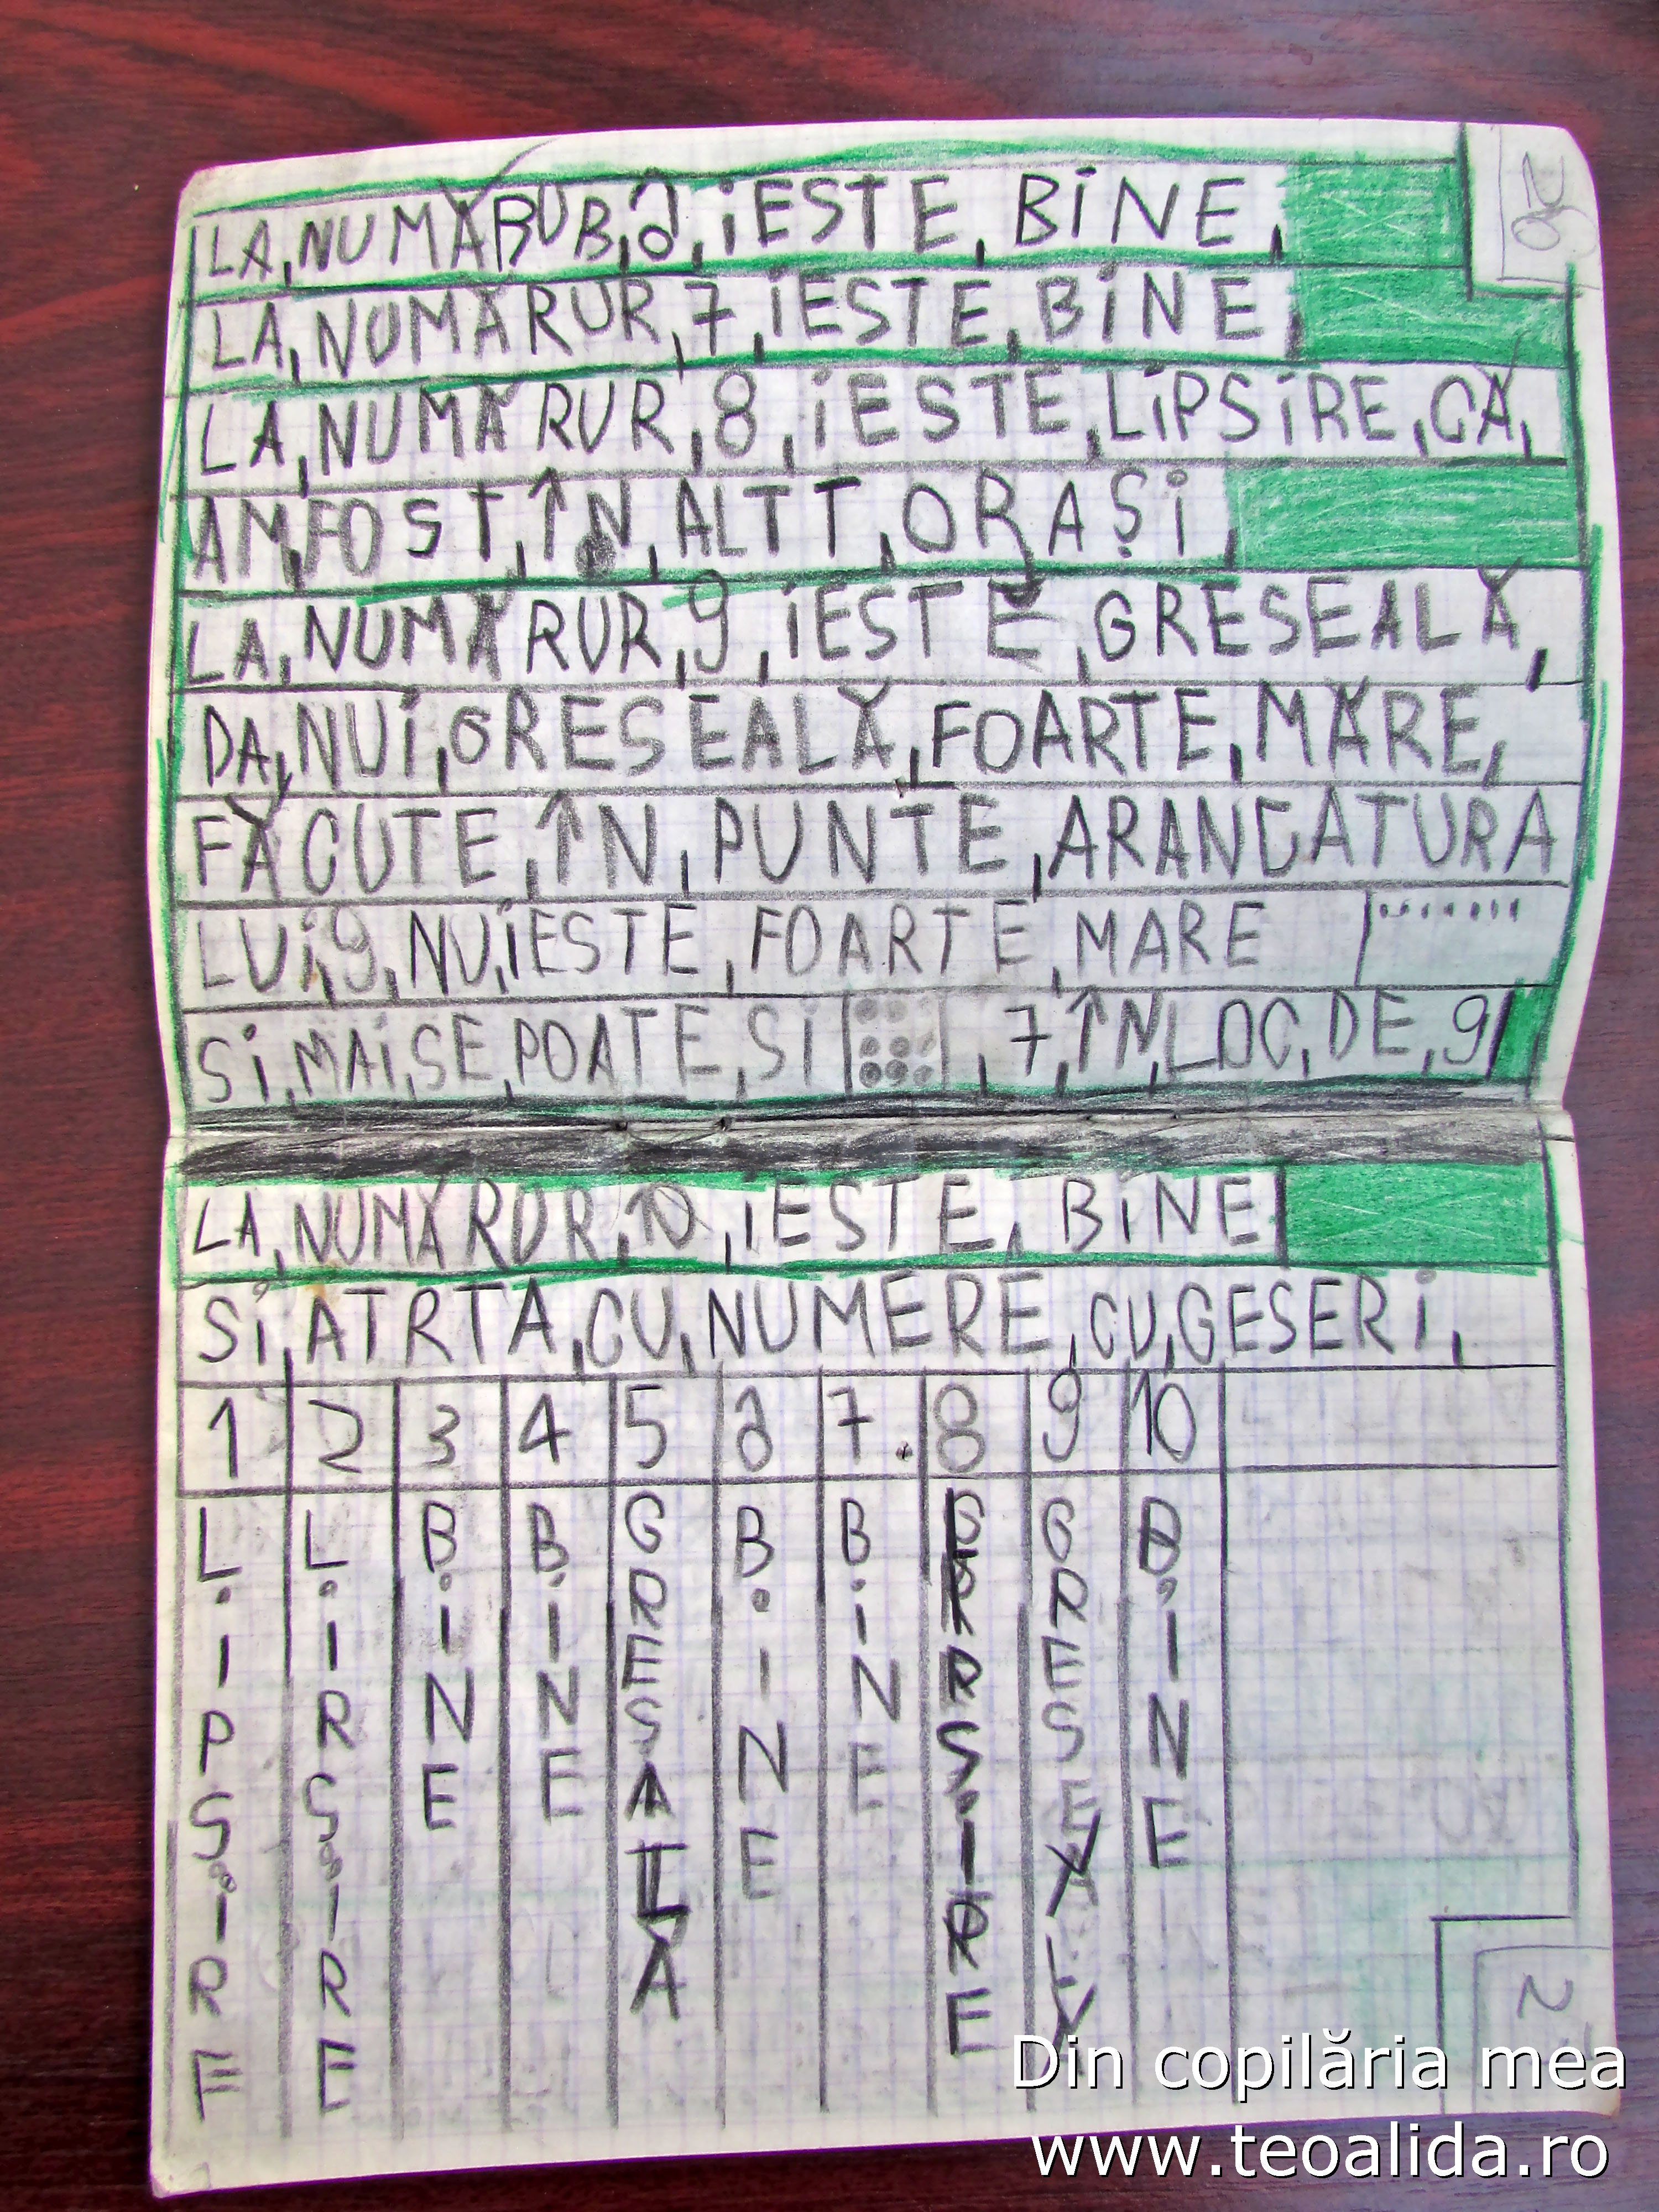 26
LA, NUMĂRUR, 6, iESTE, BiNE,
LA, NUMĂRUR, 7, iESTE, BiNE,
LA, NUMĂRUR, 8, iESTE, LiPSiRE, CĂ,
AM, FOST, ÎN, ALTT, ORAȘi,
LA, NUMĂRUR, 9, iESTE, GRESEALĂ,
DA, NUi, GRESEALĂ, FOARTE, MĂRE,
FĂCUTE, ÎN, PUNTE, ARANCATURA
LUi, 9, NU, iESTE, FOARTE, MARE
Si, MAi, SE, POATE, Si , 7, ÎN, LOC, DE, 9
LA, NUMĂRUR, 10, iESTE, BiNE
Si, ATRTA, CU, NUMERE, CU, GESERi,
1 2 3 4 5 6 7 8 9 10
LiPSiRE
LiRSiRE
BiNE
BiNE
GRESALĂ
BiNE
BiNE
BiNE
Din copilăria mea
www.teoalida.ro